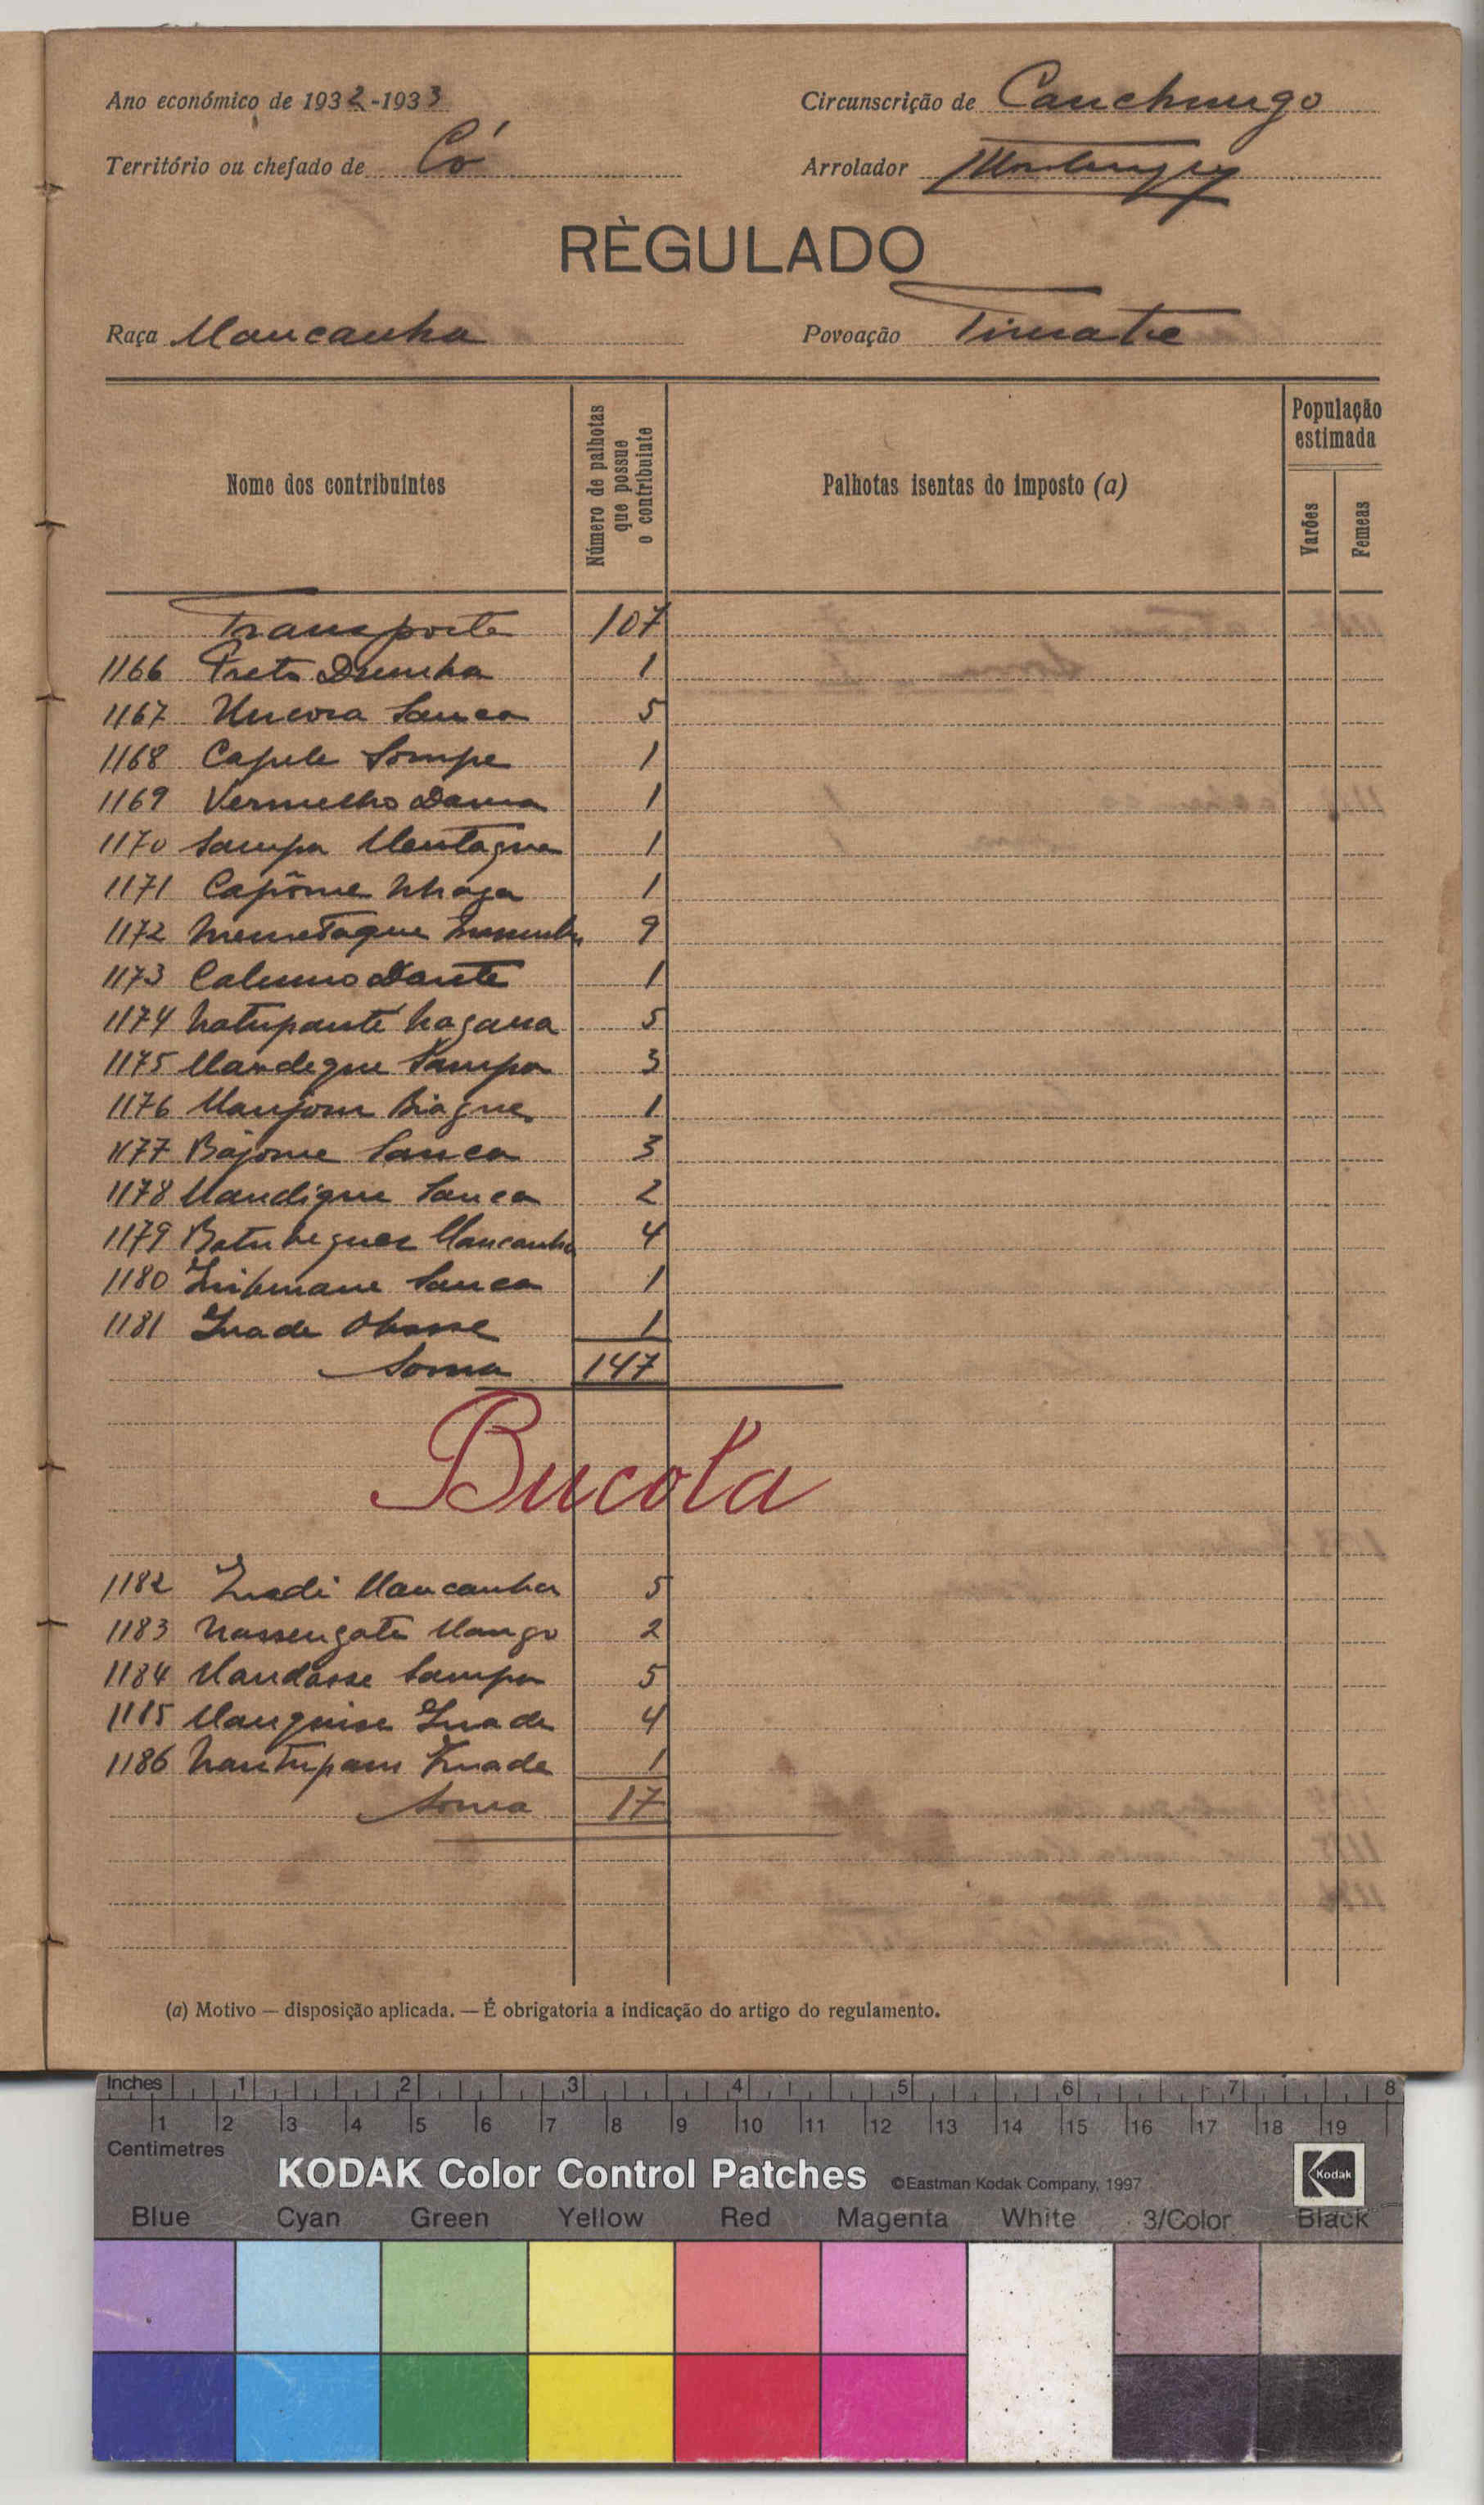 Ano económico de 1932-1933
Circunscrição de Canchungo
Território ou chefado de Có
Arrolador
RÈGULADO
Raça Mancanha
Povoação Timate
Nome dos contribuintes
Número de palhotas que possue o contribuinte
Palhotas isentas do imposto (a)
População estimada
Varões
Femeas
Transporte 107
1166 Preto 1
1167 Sanca 5
1168 Capule Sompe 1
1169 Vermelho Dama 1
1170 Sampa Mentagne 1
1171 Capôme Nhaga 1
1172 9
1173 Dante 1
1174 Natupanté Nagana 5
1175 Mandegue Sampa 3
1176 Manjom Biague 1
1177 Bajome Sanca 3
1178 Mandigue Sanca 2
1179 Mancanha 4
1180 Sanca 1
1181 1
Soma 147
Bucota
1182 Mancanha 5
1183 Nassengate Mango 2
1184 Mandasse Sampa 5
1185 4
1186 Nantupam 1
Soma 17
(a) Motivo — disposição aplicada. — É obrigatoria a indicação do artigo do regulamento.
Inches 1 2 3 4 5 6 7 8
1 2 3 4 5 6 7 8 9 10 11 12 13 14 15 16 17 18 19
Centimetres
KODAK Color Control Patches ©Eastman Kodak Company, 1997 Kodak
Blue Cyan Green Yellow Red Magenta White 3/Color Black